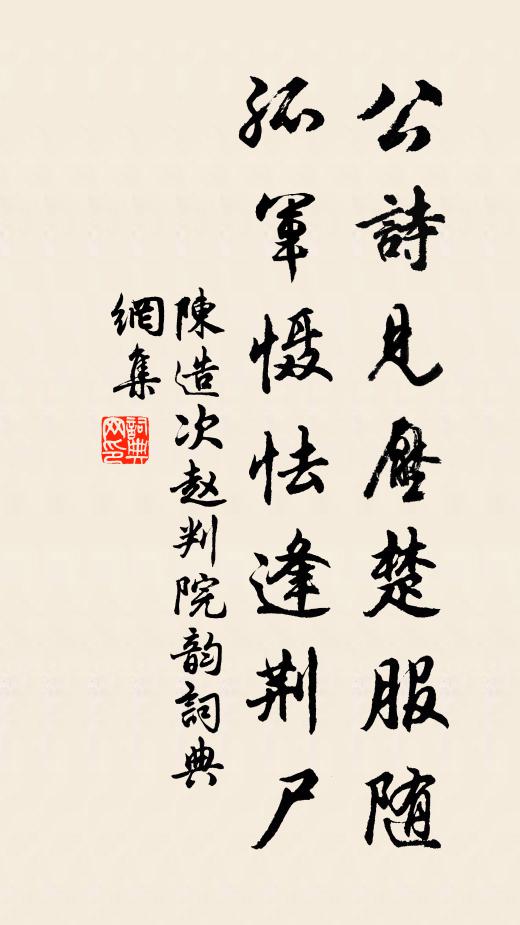 公詩見壓楚服随
孤軍慑怯逢荆尸
陳造次赵判院韵詞典
網集
詞典
网印